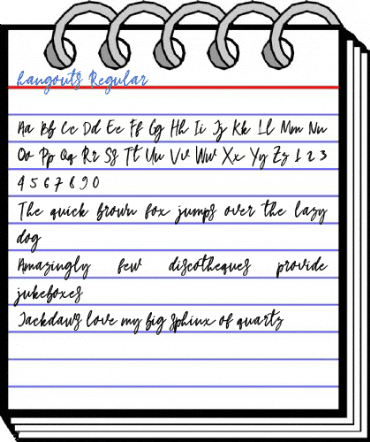 hangouts Regular
Aa Bb Cc Dd Ee Ff Gg Hh Ii Jj Kk Ll Mm Nn
Oo Pp Qq Rr Ss Tt Uu Vv Ww Xx Yy Zz 1 2 3
4 5 6 7 8 9 0
The quick brown fox jumps over the lazy
dog
Amazingly few discotheques provide
jukeboxes
Jackdaws love my big sphinx of quartz